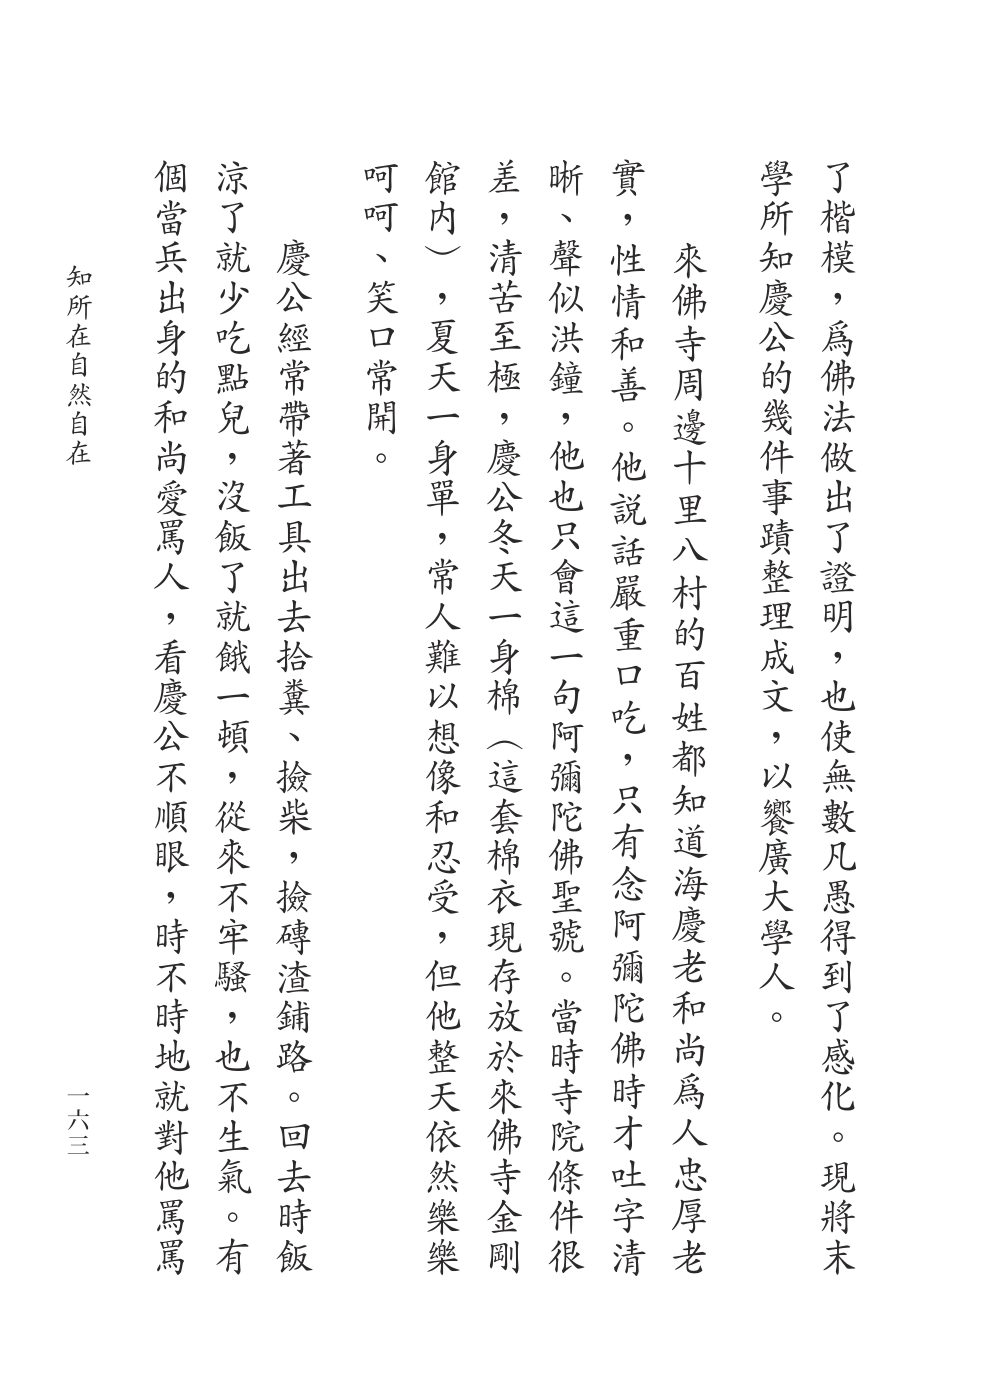 了楷模，爲佛法做出了證明，也使無數凡愚得到了感化。現將末
學所知慶公的幾件事蹟整理成文，以饗廣大學人。
來佛寺周邊十里八村的百姓都知道海慶老和尚爲人忠厚老
實，性情和善。他説話嚴重口吃，只有念阿彌陀佛時才吐字清
晰、聲似洪鐘，他也只會這一句阿彌陀佛聖號。當時寺院條件很
差，清苦至極，慶公冬天一身棉（這套棉衣現存放於來佛寺金剛
館内），夏天一身單，常人難以想像和忍受，但他整天依然樂樂
呵呵、笑口常開。
慶公經常帶著工具出去拾糞、撿柴，撿磚渣鋪路。回去時飯
涼了就少吃點兒，沒飯了就餓一頓，從來不牢騷，也不生氣。有
個當兵出身的和尚愛罵人，看慶公不順眼，時不時地就對他罵罵
知所在自然自在
一六三